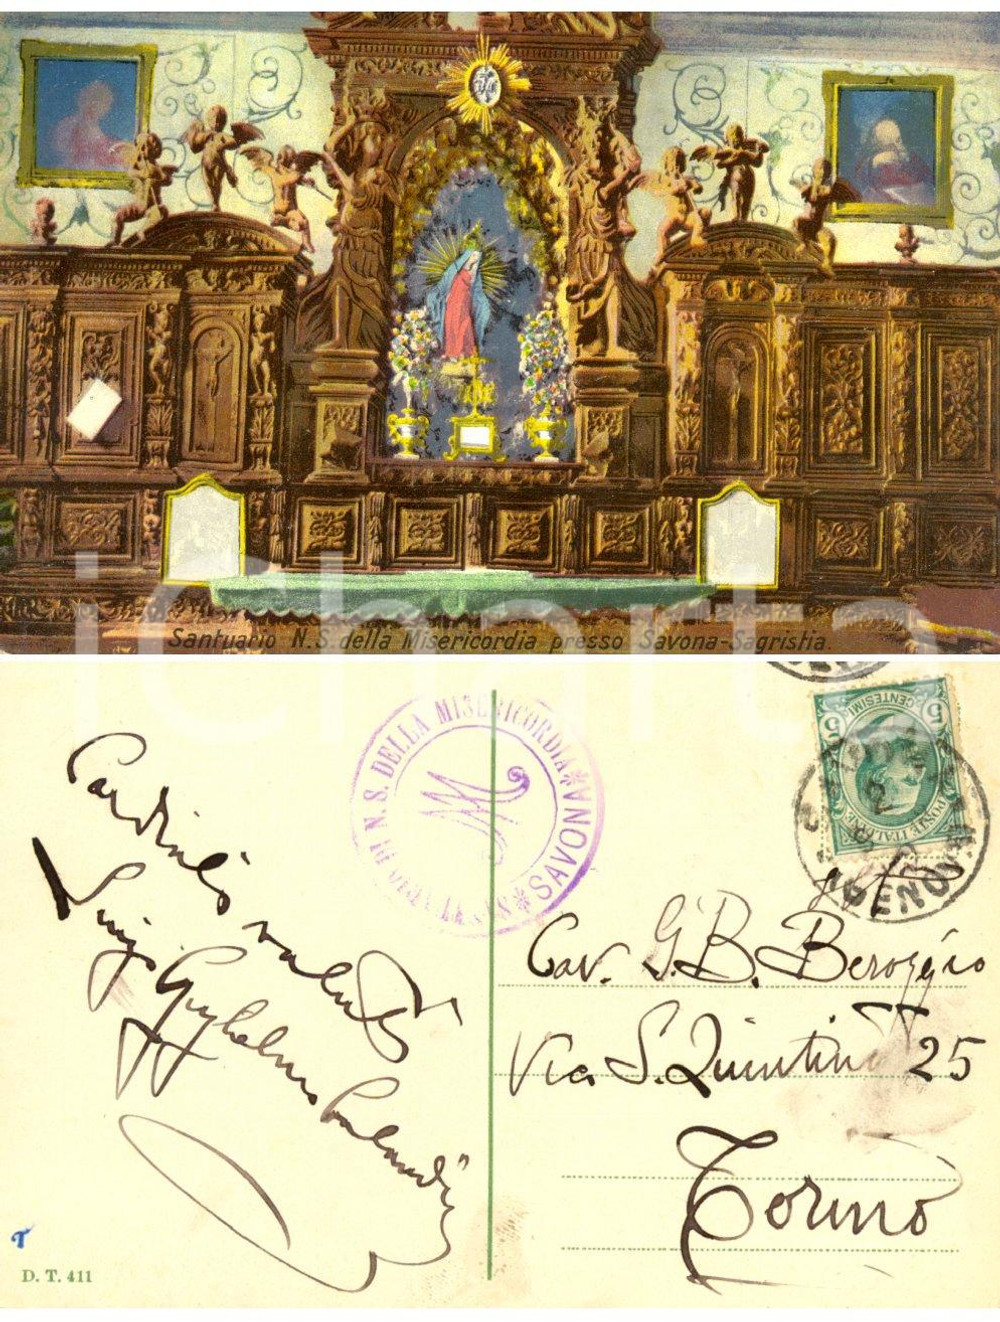 Santuario N.S. della Misericordia presso Savona-Sagristia.
iCharta
DI N. S. DELLA MISERICORDIA
SAVONA
5 5
CENTESIMI
POSTE ITALIANE
GENOVA
Cordiali saluti
Luigi Guglielmo
Cav. G.B. Beroggio
Via S. Quintino 25
Torino
D. T. 411